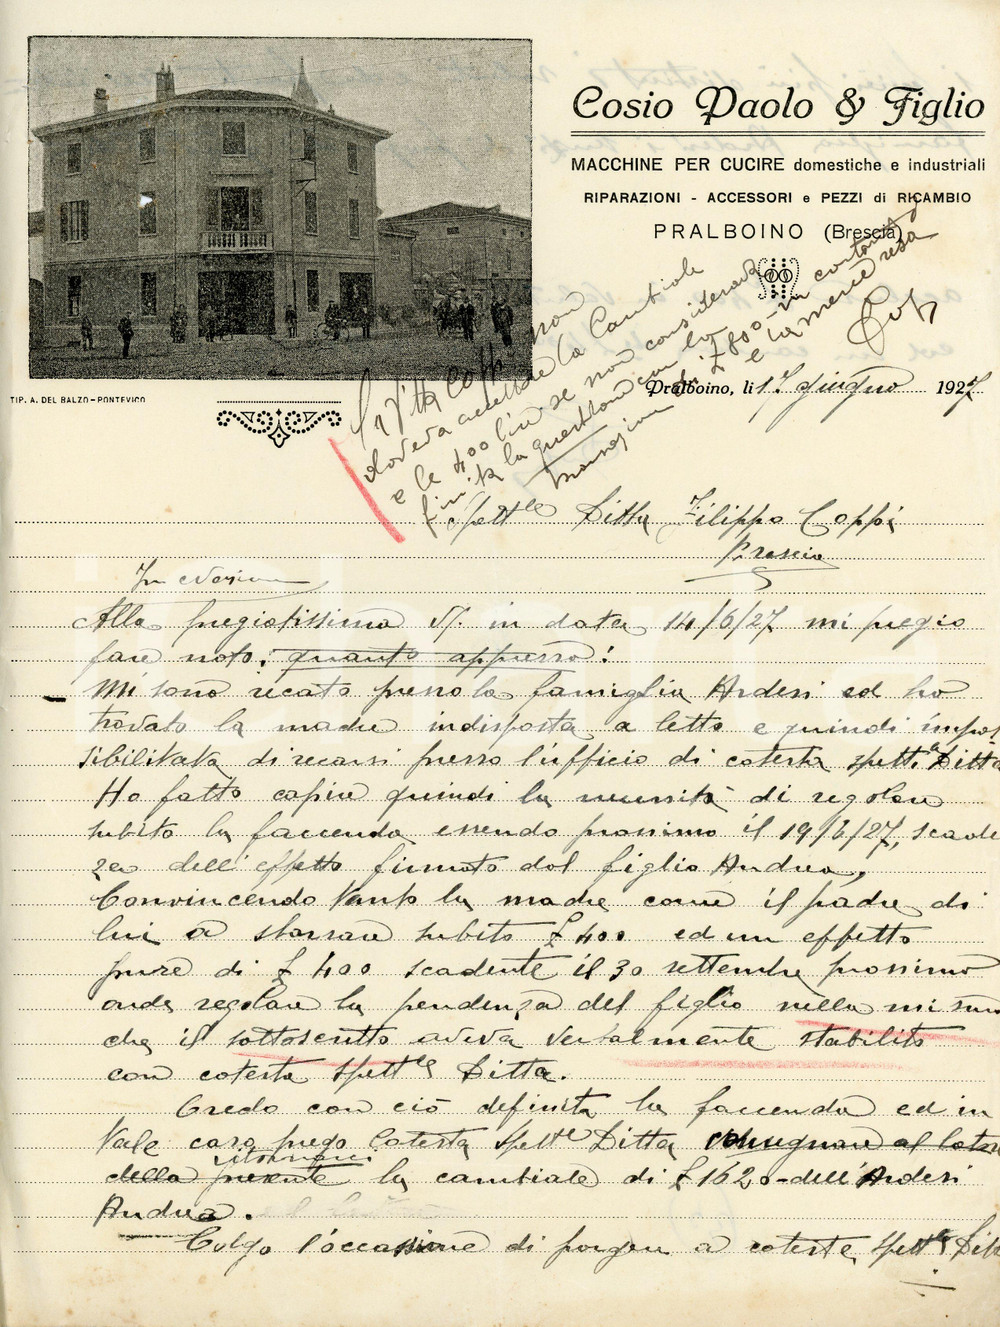 Cosio Paolo & Figlio
MACCHINE PER CUCIRE domestiche e industriali
RIPARAZIONI - ACCESSORI e PEZZI di RICAMBIO
PRALBOINO (Brescia)
TIP. A. DEL BALZO - PONTEVICO
Pralboino, li 17 giugno 1927
La Ditta Coppi non
doveva accettare la Cambiale
e le 400 lire se non considerava
finita la questione con le
£ 800 - in contanti
e la merce resa
Spett.le Ditta Filippo Coppi
Brescia
In evasione
Alla pregiatissima V/. in data 14/6/27 mi pregio
fare noto: quanto appresso:
Mi sono recato presso la famiglia Ardesi ed ho
trovato la madre indisposta a letto e quindi impos
sibilitata di recarsi presso l'ufficio di cotesta spett. Ditta
Ho fatto capire quindi la necessità di regolare
subito la faccenda essendo prossimo il 19/6/27, scaden
za dell'effetto firmato dal figlio Andrea,
Convincendo tanto la madre come il padre di
lui a sborsare subito £ 400 ed un effetto
pure di £ 400 scadente il 30 settembre prossimo
onde regolare la pendenza del figlio nella misura
che il sottoscritto aveva verbalmente stabilito
con cotesta spett.le Ditta.
Credo con ciò definita la faccenda ed in
tale caso prego Cotesta spett.le Ditta consegnare al lator
ritornarci
della presente la cambiale di £ 1620 - dell'Ardesi
Andrea.
Colgo l'occasione di porgere a cotesta spett.le Ditta